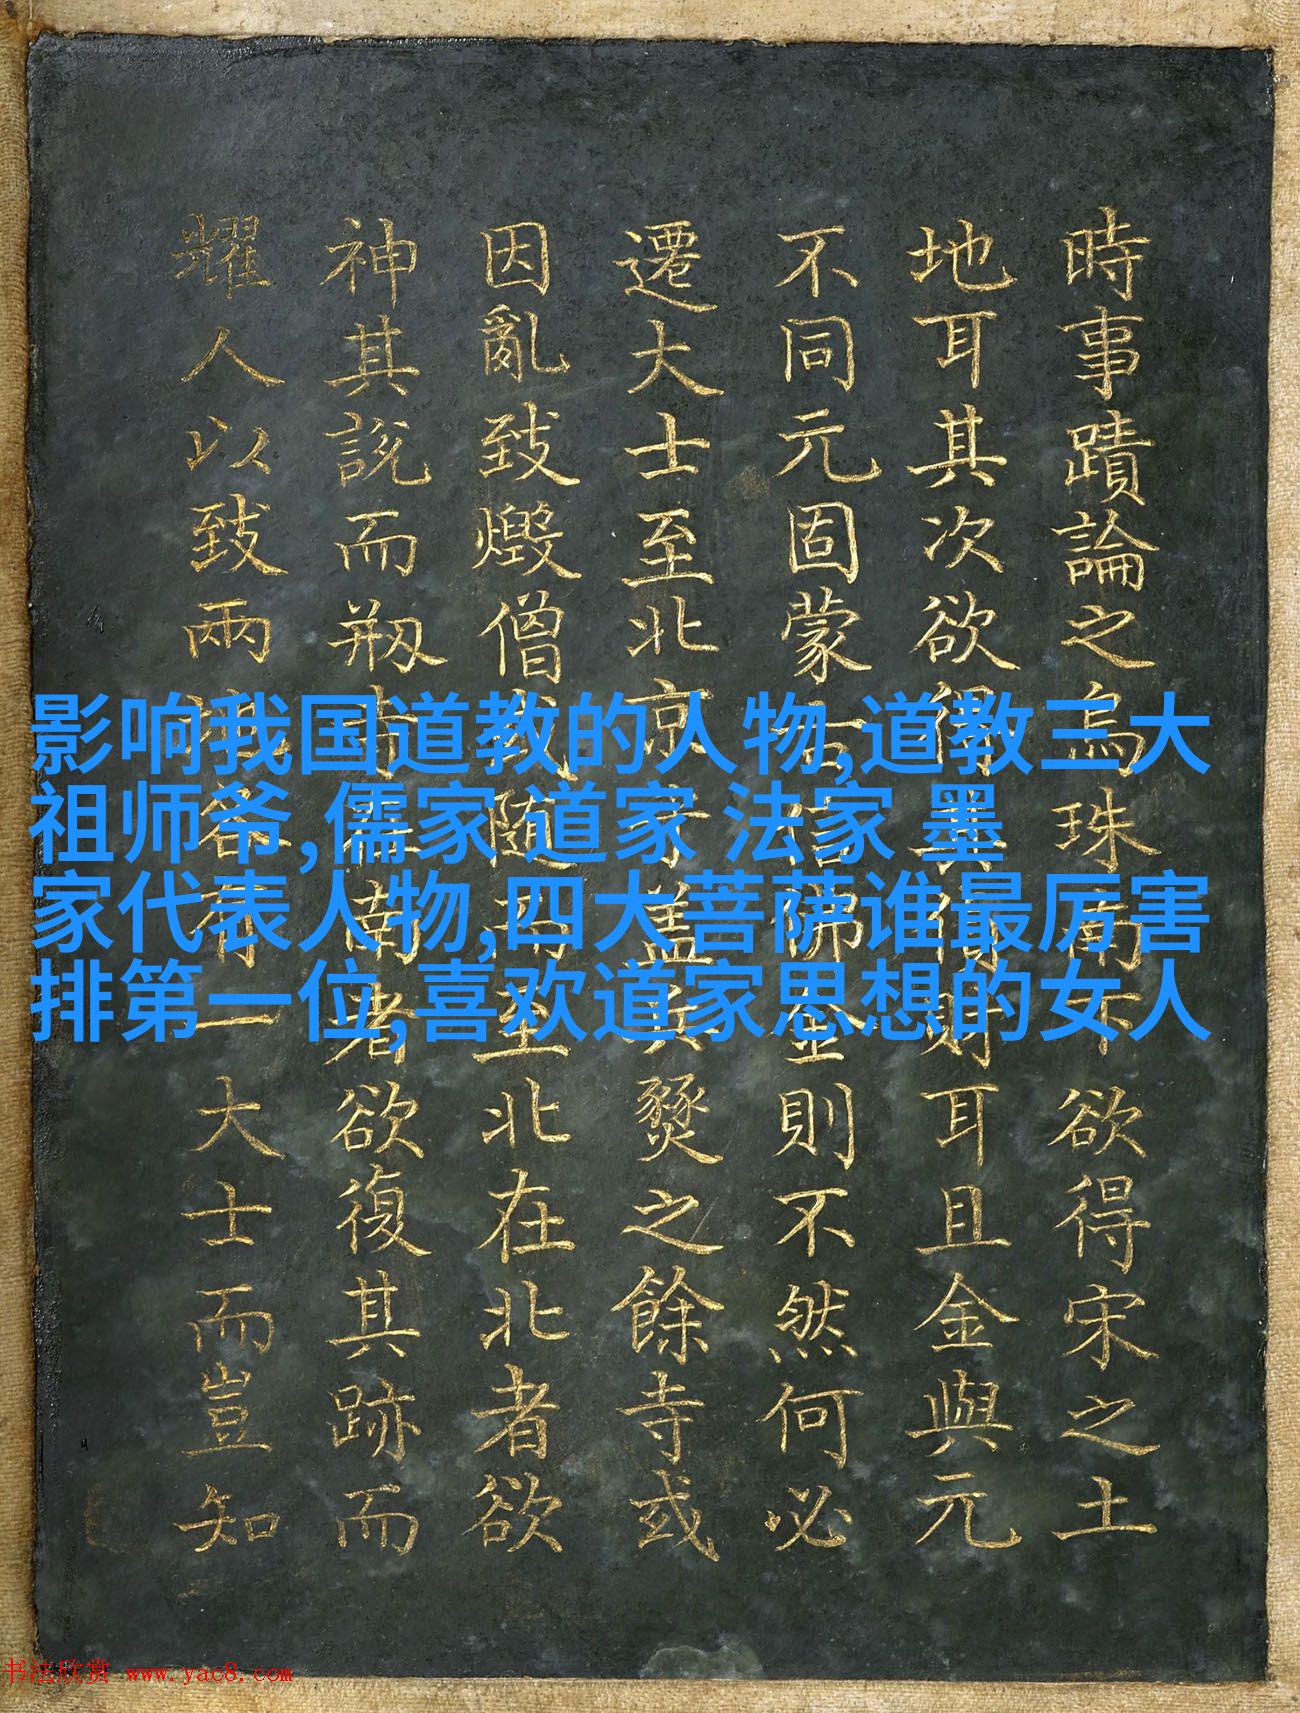 時事蹟論之烏珠南下欲得宋之土
地耳其次欲得其財耳且金與元
不同元固蒙古佛金則不然何必
遷大士至北京寺蓋兵燹之餘寺或
因亂致燬僧或隨而至北在北者欲
神其說而刱在南者欲復其跡而
耀人以致兩有一大士而豈知
影响我国道教的人物,道教三大
祖师爷,儒家 道家 法家 墨
家代表人物,四大菩萨谁最厉害
排第一位,喜欢道家思想的女人
书法欣赏 www.yac8.com